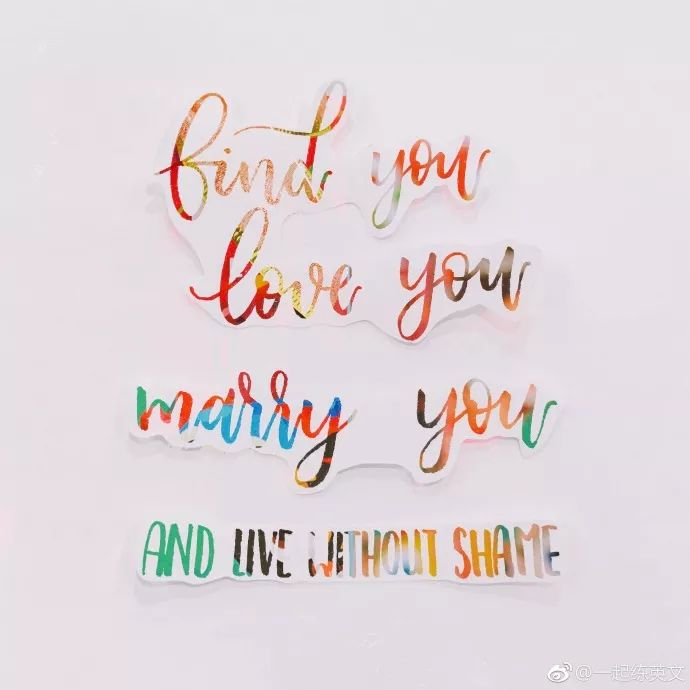 find you
love you
marry you
AND LIVE WITHOUT SHAME
@一起练英文